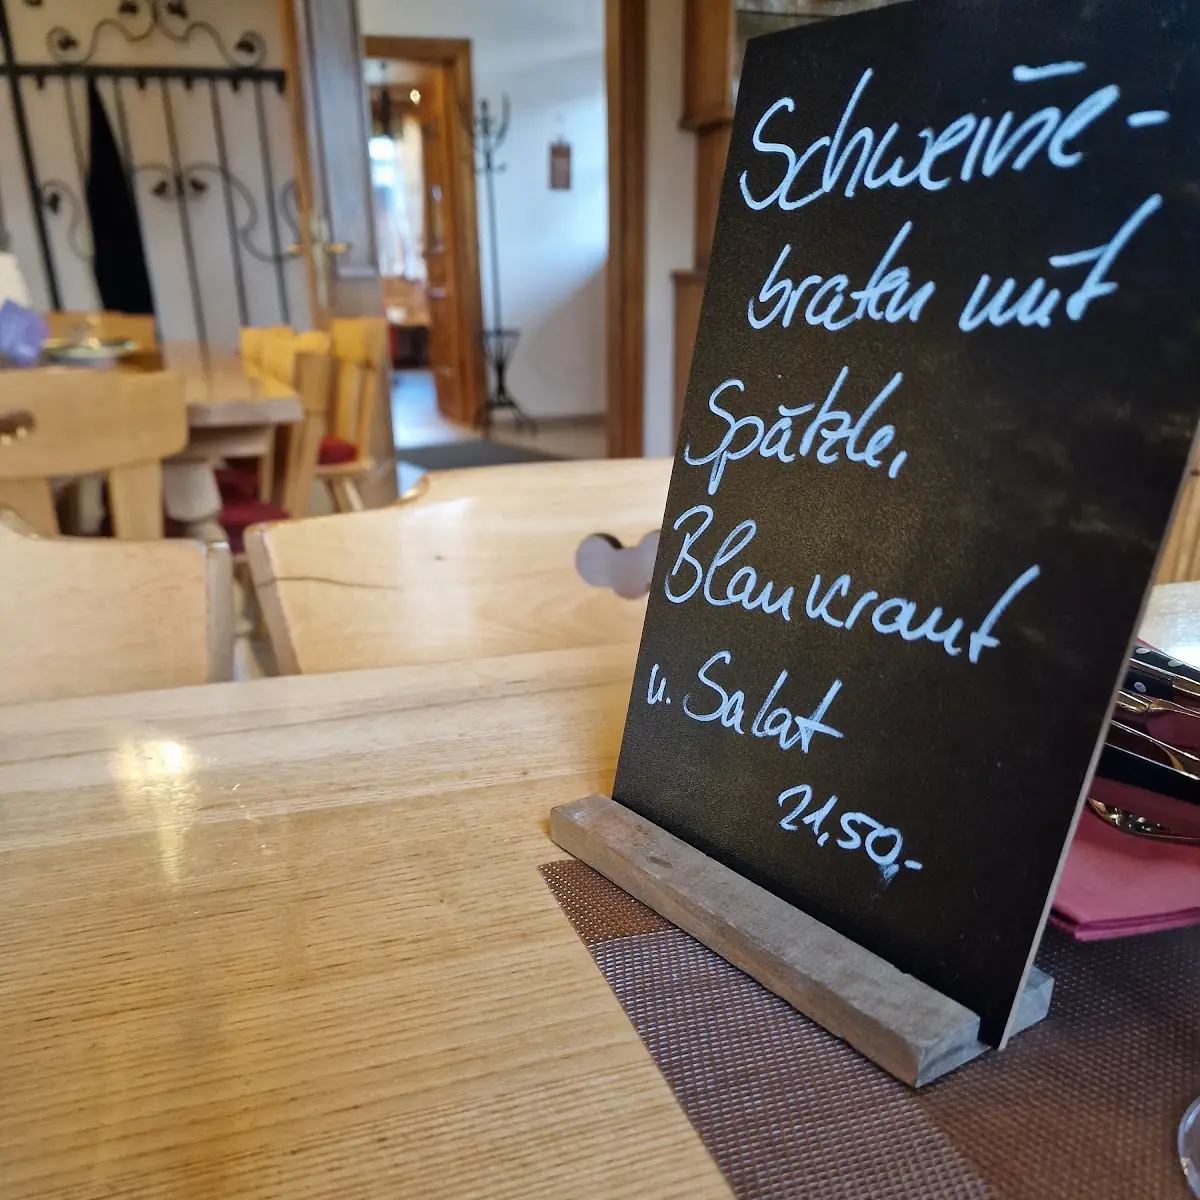 Schweine-
braten mit
Spätzle,
Blaukraut
u. Salat
21,50,-